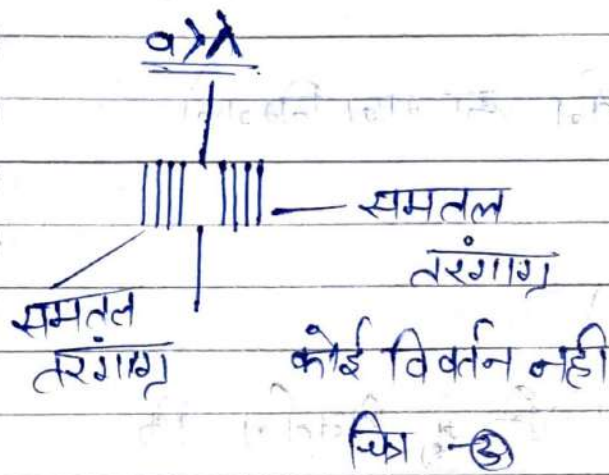 a>λ
समतल
तरंगाग्र
समतल
तरंगाग्र
कोई विवर्तन नही
चित्र -③